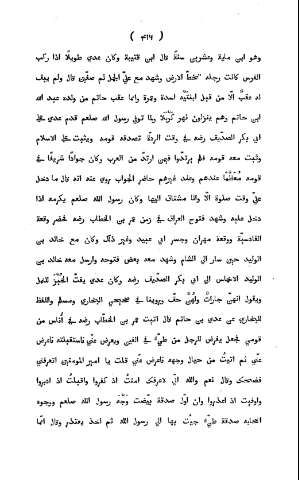 ( ٤١٦ )
وهو ابن ماية وعشرين سنة قال ابن قتيبة وكان عدى طويلا اذا ركب
الفرس كانت رجله تخط الارض وشهد مع على الجمل ثم صفين قال ولم يبق
له عقب الا من قبل ابنتيه اسدة وعمرة وانما عقب حاتم من ولده عبد الله
ابن حاتم وهم ينزلون نهر كربلا ولما توفى رسول الله صلعم قدم عدى على
ابى بكر الصديق رضه فى وقت الردة بصدقه قومه ويثبت على الاسلام
وثبت معه قومه فلم يرتدوا فيمن ارتد من العرب وكان جوادا شريفا فى
قومه معظما عندهم وعند غيرهم حاضر الجواب روى عنه انه قال ما دخل
على وقت صلوة الا وانا مشتاق اليها وكان رسول الله صلعم يكرمه اذا
دخل عليه وشهد فتوح العراق فى زمن عمر بن الخطاب رضه حضر وقعة
القادسية ووقعة مهران وجسر ابى عبيد وغير ذلك وكان مع خالد بن
الوليد حين سار الى الشام وشهد معه بعض فتوحه وارسل معه خالد بن
الوليد الاخماس الى ابى بكر الصديق رضه وكان عدى يفت الخبز للنمل
ويقول انهن جارات ولهن حق وروينا فى صحيحى البخارى ومسلم واللفظ
للبخارى عن عدى بن حاتم قال اتيت عمر بن الخطاب رضه فى اناس من
قومى فجعل يفرض للرجل من طى فى الفين ويعرض عنى فاستقبلته فاعرض
عنى ثم اتيت من حيال وجهه فاعرض عنى قلت يا امير المومنين اتعرفنى
فضحك وقال نعم والله انى لاعرفك امنت اذ كفروا واقبلت اذ ادبروا
ووفيت اذ اغدروا وان اول صدقة بيضت وجه رسول الله صلعم ووجوه
اصحابه صدقة طيء جيت بها الى رسول الله ثم اخذ يعتذر وقال انما